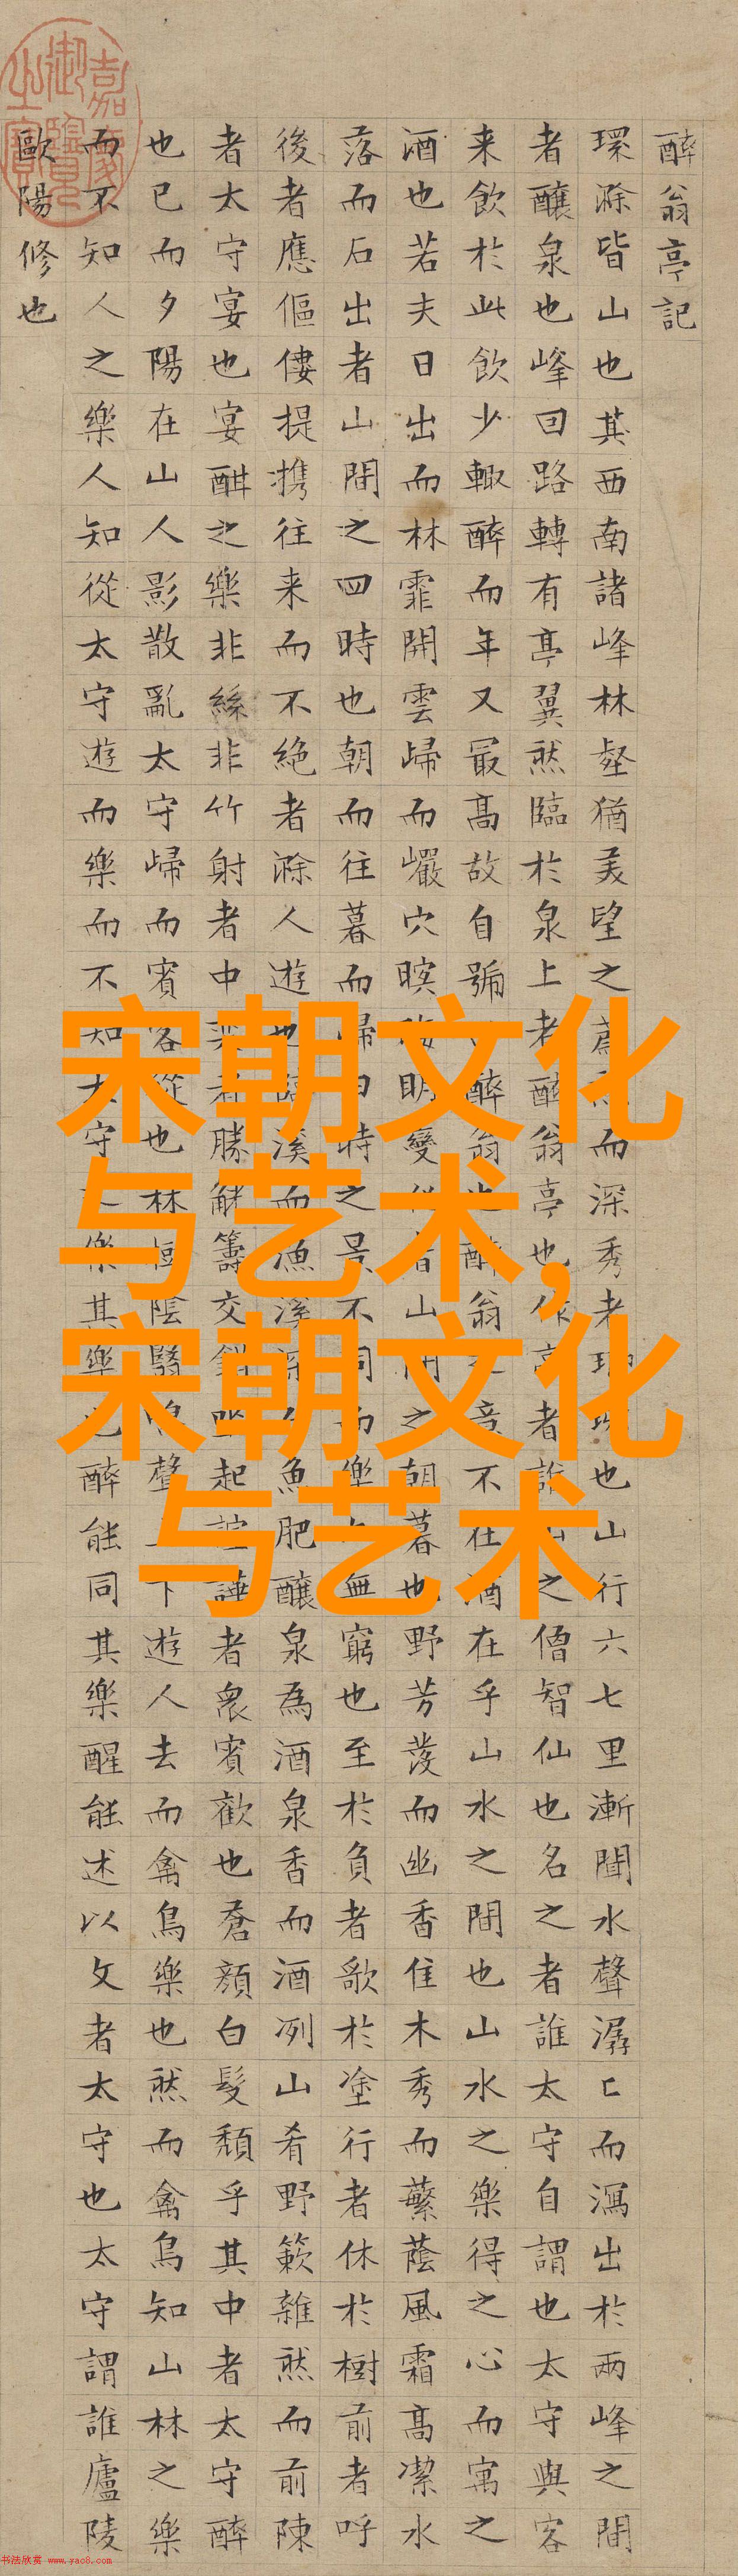 醉翁亭記
環滁皆山也其西南諸峰林壑猶美望之蔚然而深秀者琅琊也山行六七里漸聞水聲潺〻而瀉出於兩峰之間
者釀泉也峰回路轉有亭翼然臨於泉上者醉翁亭也作亭者誰山之僧智仙也名之者誰太守自謂也太守與客
来飲於此飲少輒醉而年又最高故自號醉翁也醉翁之意不在酒在乎山水之間也山水之樂得之心而寓之
酒也若夫日出而林霏開雲歸而巖穴暝晦明變化者山間之朝暮也野芳發而幽香佳木秀而蘩蔭風霜高潔水
落而石出者山間之四時也朝而往暮而歸四時之景不同而樂亦無窮也至於負者歌於塗行者休於樹前者呼
後者應傴僂提携往来而不絶者滁人遊也臨溪而漁溪深而魚肥釀泉為酒泉香而酒冽山肴野蔌雜然而前陳
者太守宴也宴酣之樂非絲非竹射者中奕者勝觥籌交錯坐起諠譁者衆賓歡也蒼顏白髮頹乎其中者太守醉
也已而夕陽在山人影散亂太守歸而賓客從也林陰翳鳴聲上下遊人去而禽鳥樂也然而禽鳥知山林之樂
而不知人之樂人知從太守遊而樂而不知太守之樂其樂也醉能同其樂醒能述以文者太守也太守謂誰廬陵
歐陽修也
嘉慶御覽之寶
宋朝文化
与艺术,
宋朝文化
与艺术
书法欣赏 www.yac8.com